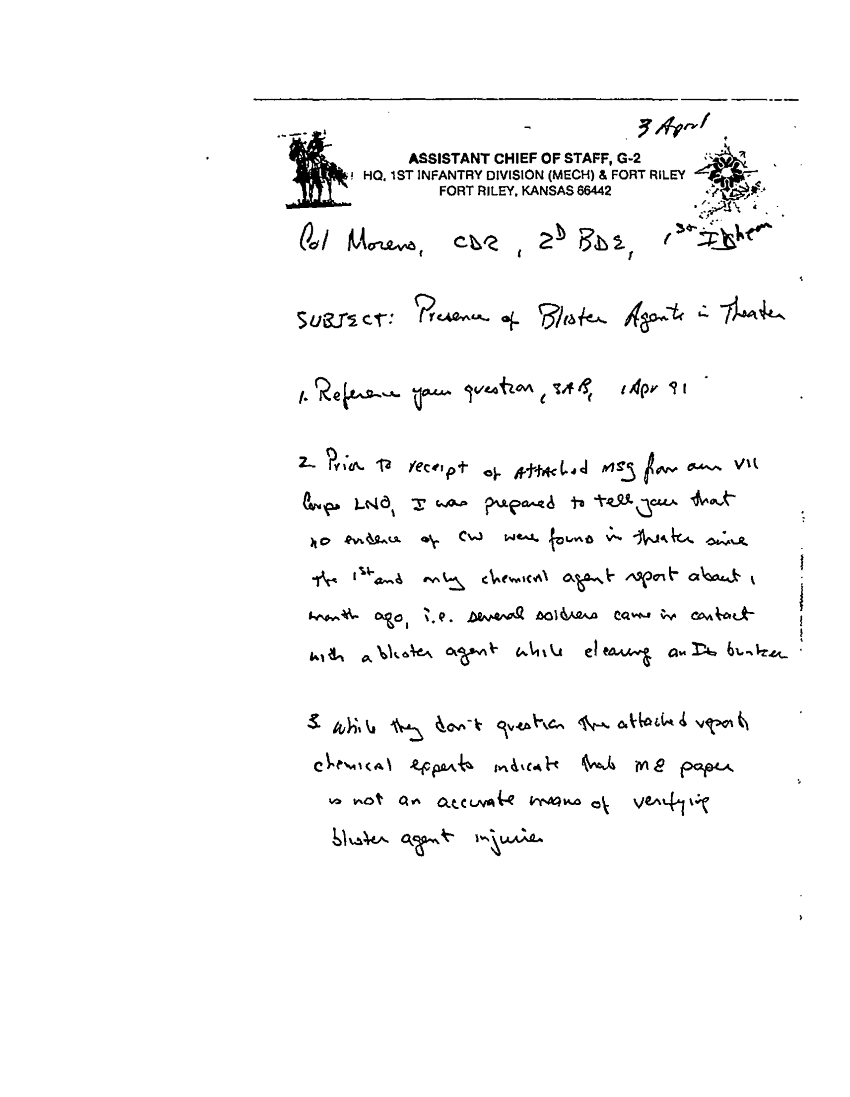 3 April
ASSISTANT CHIEF OF STAFF, G-2
HQ, 1ST INFANTRY DIVISION (MECH) & FORT RILEY
FORT RILEY, KANSAS 66442
Col Moreno, CDR, 2D BDE, 1st ID
SUBJECT: Presence of Blister Agents in Theater
1. Reference your question, SAB, 1 Apr 91
2. Prior to receipt of attached msg from our VII
Corps LNO, I was prepared to tell you that
no evidence of CW were found in theater since
the 1st and only chemical agent report about 1
month ago, i.e. several soldiers came in contact
with a blister agent while clearing an Iz bunker
3. While they don't question the attached report,
chemical experts indicate that M8 paper
is not an accurate means of verifying
blister agent injuries